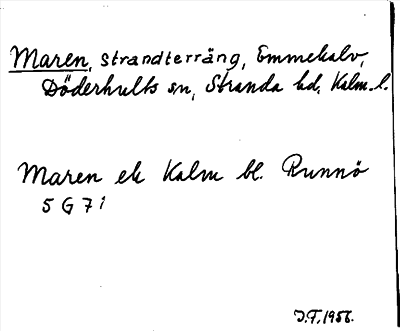 Maren, strandterräng, Emmekalv,
Döderhults sn, Stranda hd, Kalm. l.
Maren ek Kalm bl. Runnö
5 G 7 i
J.F. 1956.